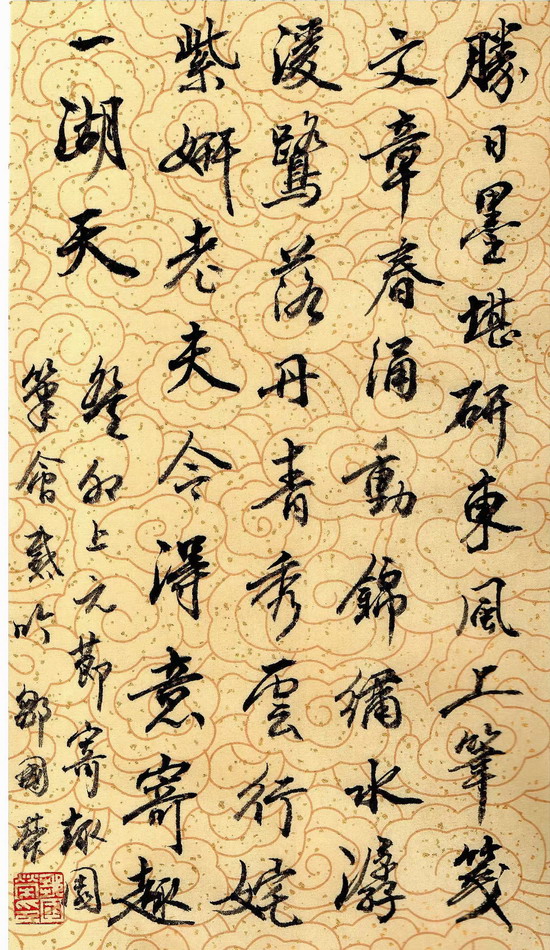 勝日墨堪研東風上筆箋
文章春涌動錦繡水潺
湲鷺落丹青秀雲行姹
紫妍老夫今得意寄趣
一湖天
癸卯上元節寄趣園
筆會戲吟 鄒國榮